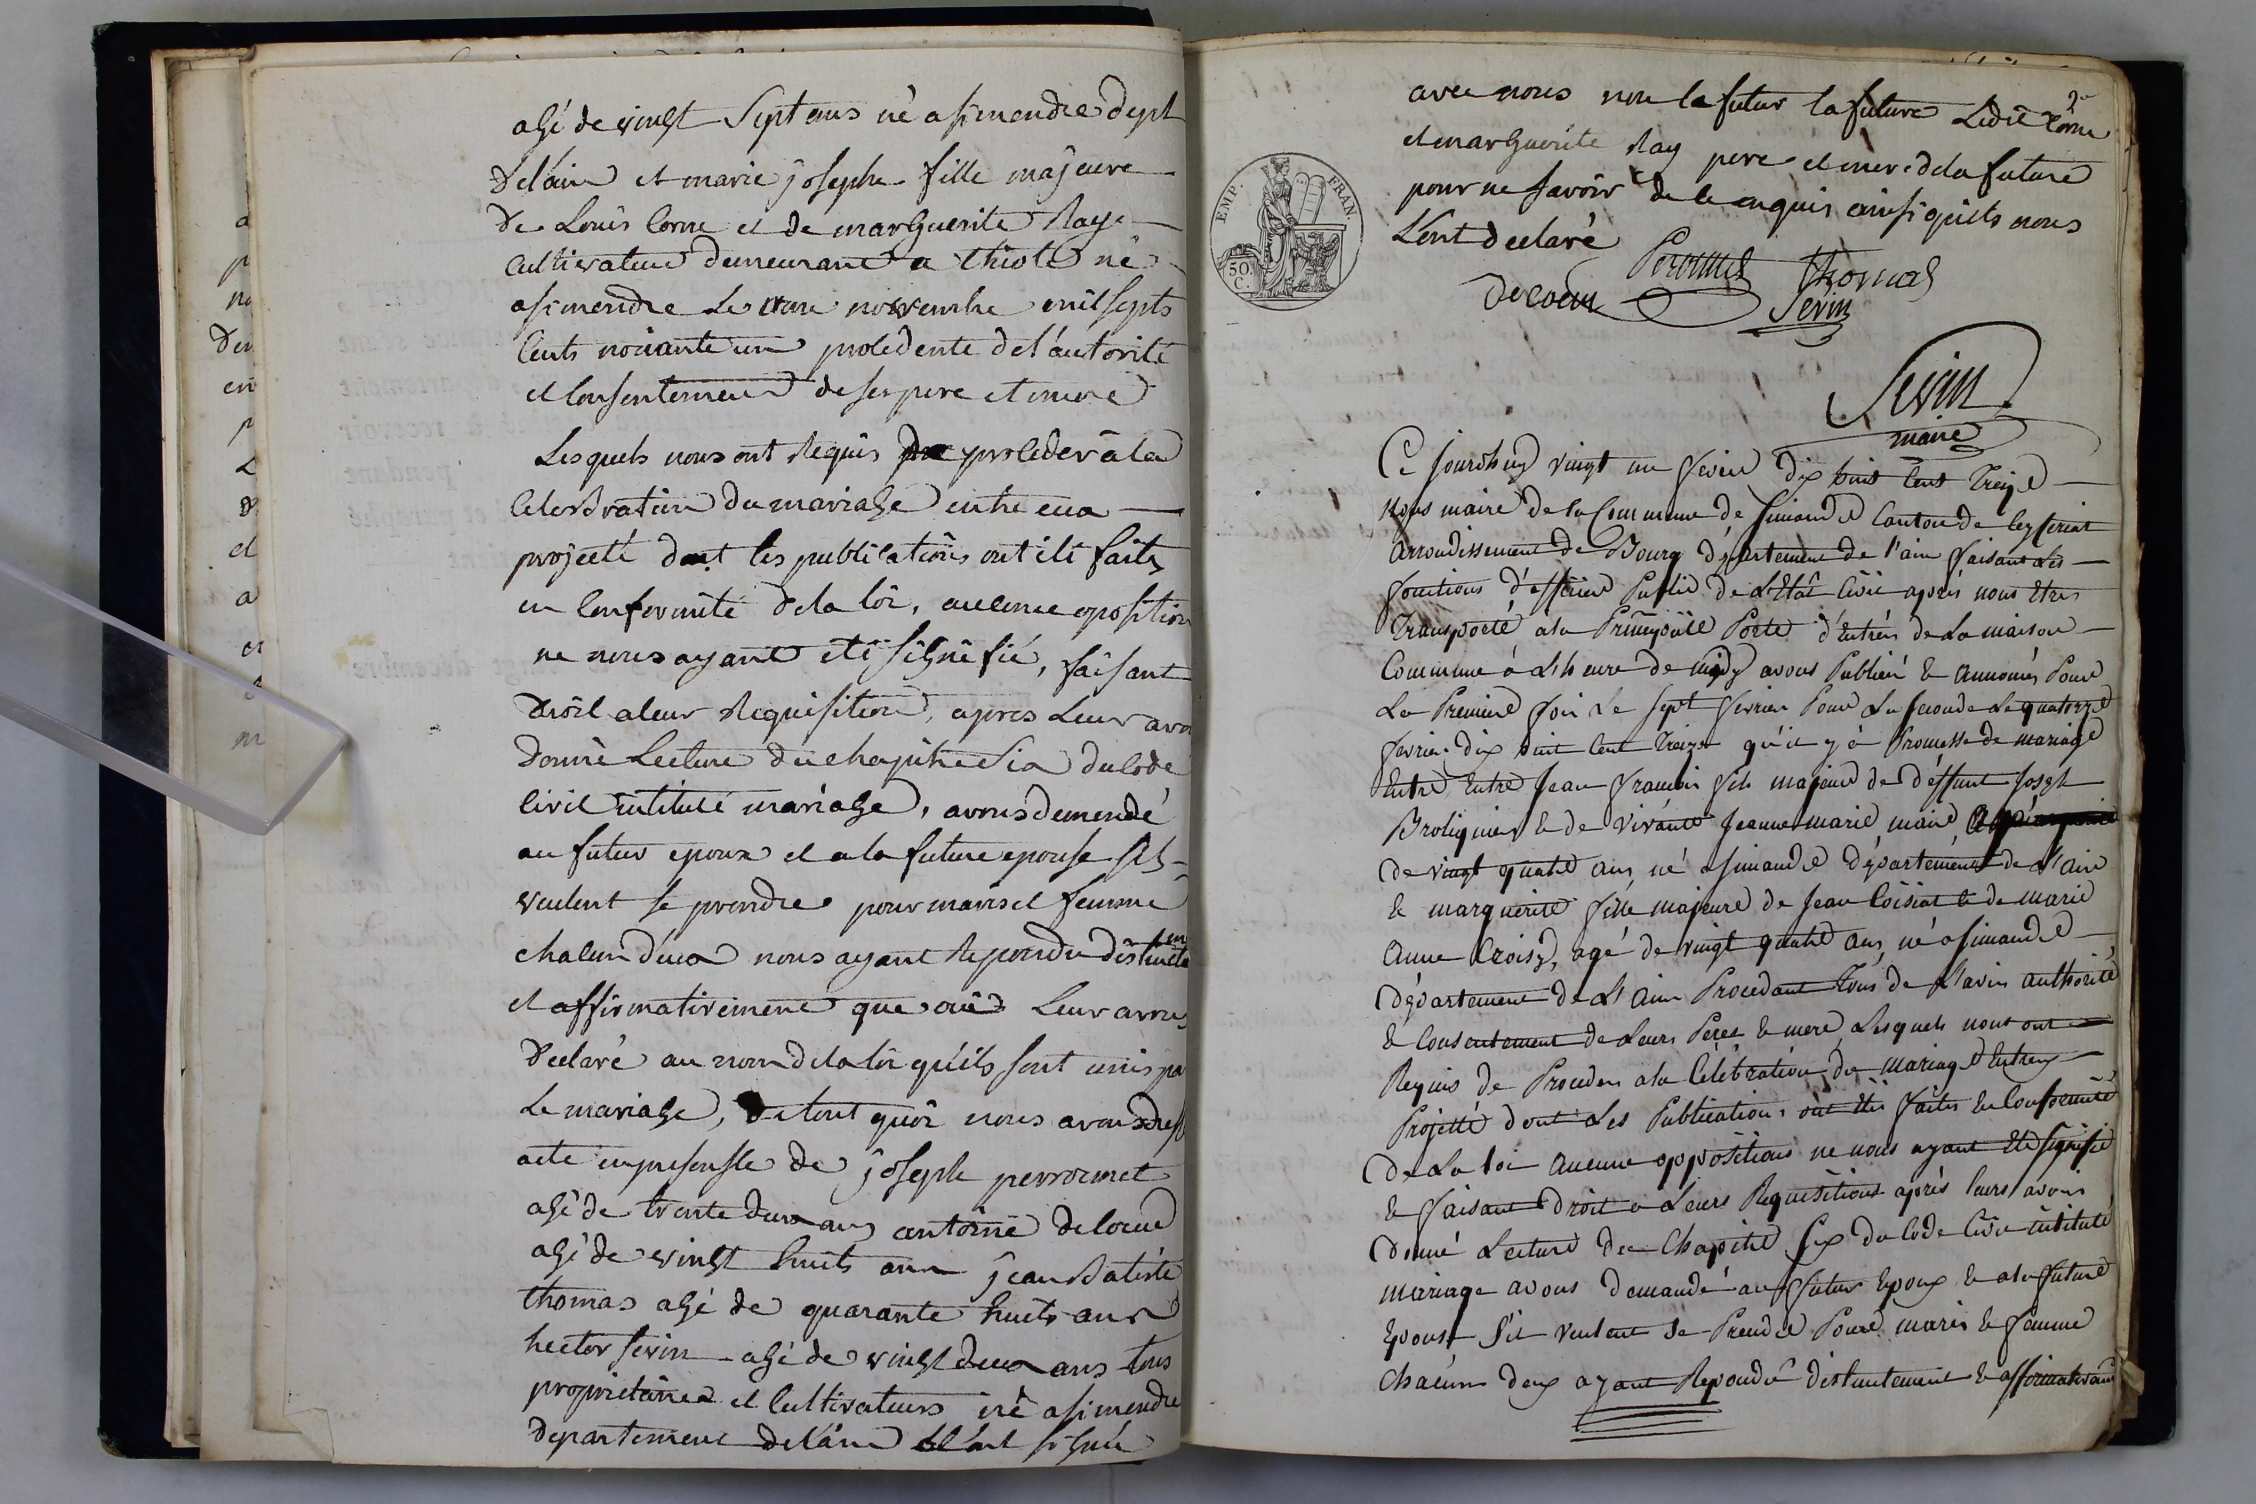 agé de vingt Sept ans né a simendre dept
de l'ain et marie josephe fille majeure
de Louis Corne et de marguerite Raye
Cultivateur demeurant a thiole né
a simendre Le onze novembre mil septs
Cents nonante un procedente de l'autorité
et Consentement de ses pere et mere
Lesquels nous ont Requis proceder a la
Celebration du mariage entre eux
projeté dont les publications ont été faites
en Conformité de la loi, aucune oposition
ne nous ayant été signifié, faisant
droit a leur Requisition, apres Leur avoir
donné Lecture du chapitre Six du Code
Civil intitulé mariage, avons demendé
au futur epoux et a la future epouse s'ils
veulent se prendre pour mari et femme
chacun d'eux nous ayant Repondu distinctement
et affirmativement que oui Leur avons
declaré au nom de la loi qu'ils sont unis par
Le mariage, de tout quoi nous avons dressé
acte en presense de joseph perroumet
agé de trente deux ans antoine decoeur
agé de vingt huits ans jean Batiste
thomas agé de quarante huits ans
hector sevin agé de vingt deux ans tous
proprietaires et Cultivateurs né a simendre
departement de l'ain ont signé
avec nous non le futur la future Ledit Corne
et marguerite Ray pere et mere de la future
pour ne savoir de ce enquis ainsi qu'ils nous
L'ont declaré
EMP. FRAN.
50 C.
decoeur thomas
Sevin
Sevin
maire
Ce jourdhuy vingt un fevrier dix huit Cent Treize
Nous maire de la Commune de Simandre Canton de Ceyseriat
arrondissement de Bourg département de l'ain faisant Les
fonctions d'officier Public de L'Etât Civil après nous Etres
Transporté a la Principalle Porte d'Entrée de La maison
Commune à L'heure de midy avons Publiée & annoncés Pour
La Premiere fois Le sept fevrier Pour La seconde Le quatorze
fevrier dix huit Cent Treize qu'il y à Promesse de mariage
Entre Entre Jean François fils majeur de déffunt Joseph
Broliquier & de vivante Jeanne marie maire
de vingt quatre ans, né a simandre département de L'ain
& marguerite fille majeure de Jean Coisiat & de marie
Anne Croisy, agé de vingt quatre ans, né a simandre
département de L'ain Procedant Tous de L'avis authorité
& Consentement de Leurs Peres & mere Lesquels nous ont
Requis de Proceder a la Célébration du mariage Entreux
Projetté dont Les Publications ont été faites En Conformité
de La loi aucune oppositions ne nous ayant été signifié
& faisant droit a Leurs Requisitions après leurs avoir
donné Lecture du Chapitre six du Code Civil intitulé
mariage avons demandé au futur Epoux & a la future
Epouse S'il veulent se Prendre Pour maris & femme
Chacun deux ayant Repondu distintement & affirmativement